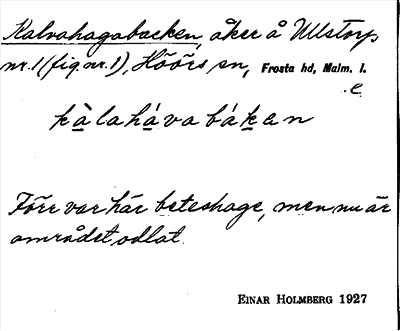 Kalvahagabacken, åker å Ullstorp
nr. 1 (fig. nr. 1), Höörs sn, Frosta hd, Malm. l.
.e
kàlaháva bákan
Förr var här beteshage, men nu är
området odlat.
EINAR HOLMBERG 1927